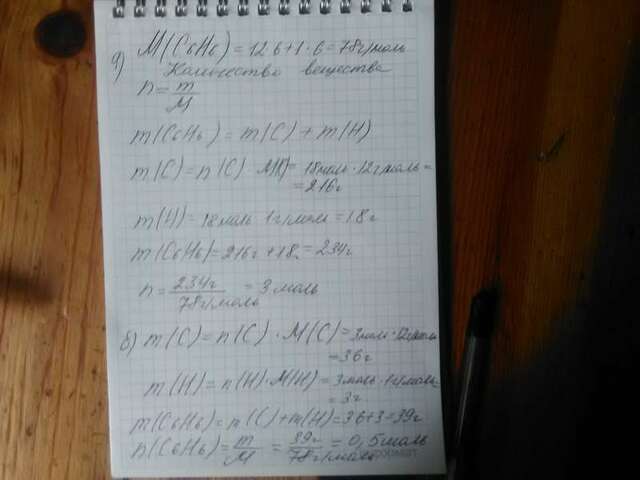 а) M(C6H6) = 12·6+1·6=78г/моль
Количество вещества
n = m/M
m(C6H6) = m(C) + m(H)
m(C) = n(C) · M(C) = 18моль · 12г/моль =
= 216г
m(H) = 18моль · 1г/моль = 18г
m(C6H6) = 216г + 18г = 234г
n = 234г/78г/моль = 3моль
б) m(C) = n(C) · M(C) = 3моль · 12г/моль
= 36г
m(H) = n(H) · M(H) = 3моль · 1г/моль =
= 3г
m(C6H6) = m(C) + m(H) = 36+3=39г
n(C6H6) = m/M = 39г/78г/моль = 0,5моль